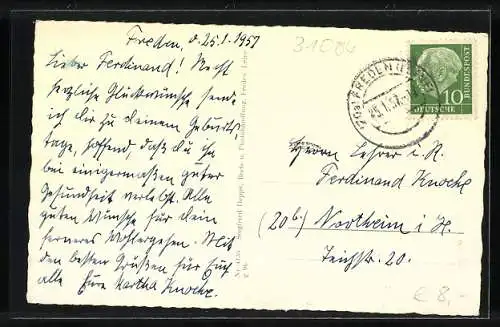 Freden, d. 25.1.1957
Lieber Ferdinand! Recht
herzliche Glückwünsche sende
ich Dir zu deinem Geburts-
tage, hoffend, daß du ihn
bei einigermaßen guter
Gesundheit verlebst. Alle
guten Wünsche für Dein
ferneres Wohlergehen. Mit
den besten Grüßen für Euch
alle Eure Martha Knoche.
31084
(20a) FREDEN (LEINE)
25.1.57
10
DEUTSCHE
BUNDESPOST
Herrn Lehrer i. R.
Ferdinand Knoche
(20b) Northeim i. H.
Teichstr. 20.
€ 8,-
Siegfried Hoppe, Buch- u. Photohandlung, Freden Leine